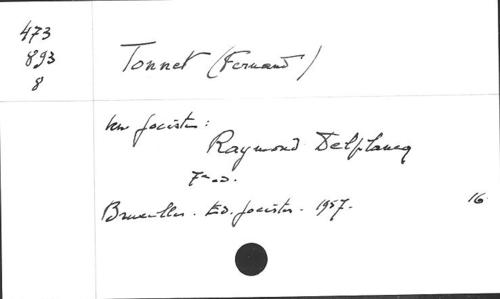 473
893
8
Tonnet (Fernand)
un jociste :
Raymond Delplancq
7e éd.
Bruxelles. Ed. jociste. 1957.
16